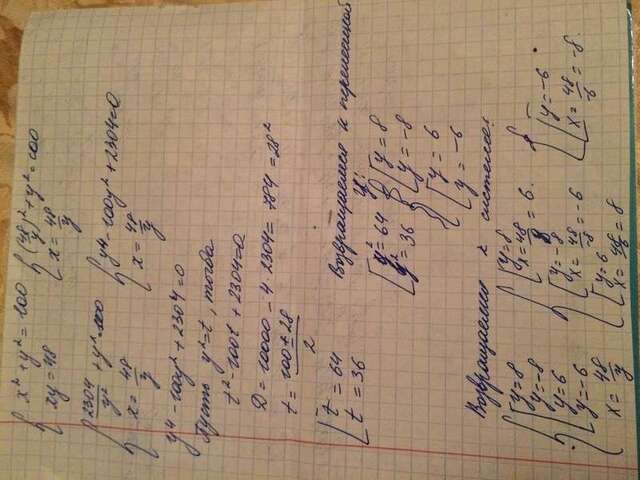 { x² + y² = 100
{ xy = 48
{ (48/y)² + y² = 100
{ x = 48/y
{ 2304/y² + y² = 100
{ x = 48/y
{ y⁴ - 100y² + 2304 = 0
{ x = 48/y
y⁴ - 100y² + 2304 = 0
Пусть y² = t, тогда
t² - 100t + 2304 = 0
D = 10000 - 4·2304 = 784 = 28²
t = (100 ± 28)/2
[ t = 64
[ t = 36
Возвращаемся к переменной
y:
[ y² = 64
[ y² = 36
[ y = 8
[ y = -8
[ y = 6
[ y = -6
Возвращаемся к системе:
{ [ y = 8
[ y = -8
[ y = 6
[ y = -6
x = 48/y
{ y = 8
x = 48/8 = 6.
{ y = -8
x = 48/-8 = -6
{ y = 6
x = 48/6 = 8
{ y = -6
x = 48/-6 = -8.